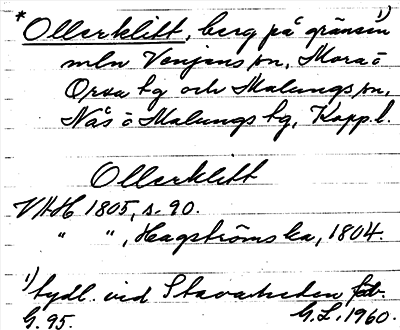 * Ollerklitt, berg på gränsen ¹)
mln Venjans sn, Mora o
Orsa tg och Malungs sn,
Nås o Malungs tg, Kopp. l.
Ollerklitt
VAH 1805, s. 90.
" ", Hagströms ka, 1804.
¹) tydl. vid Stavarheden
G. 95. G. L. 1960.